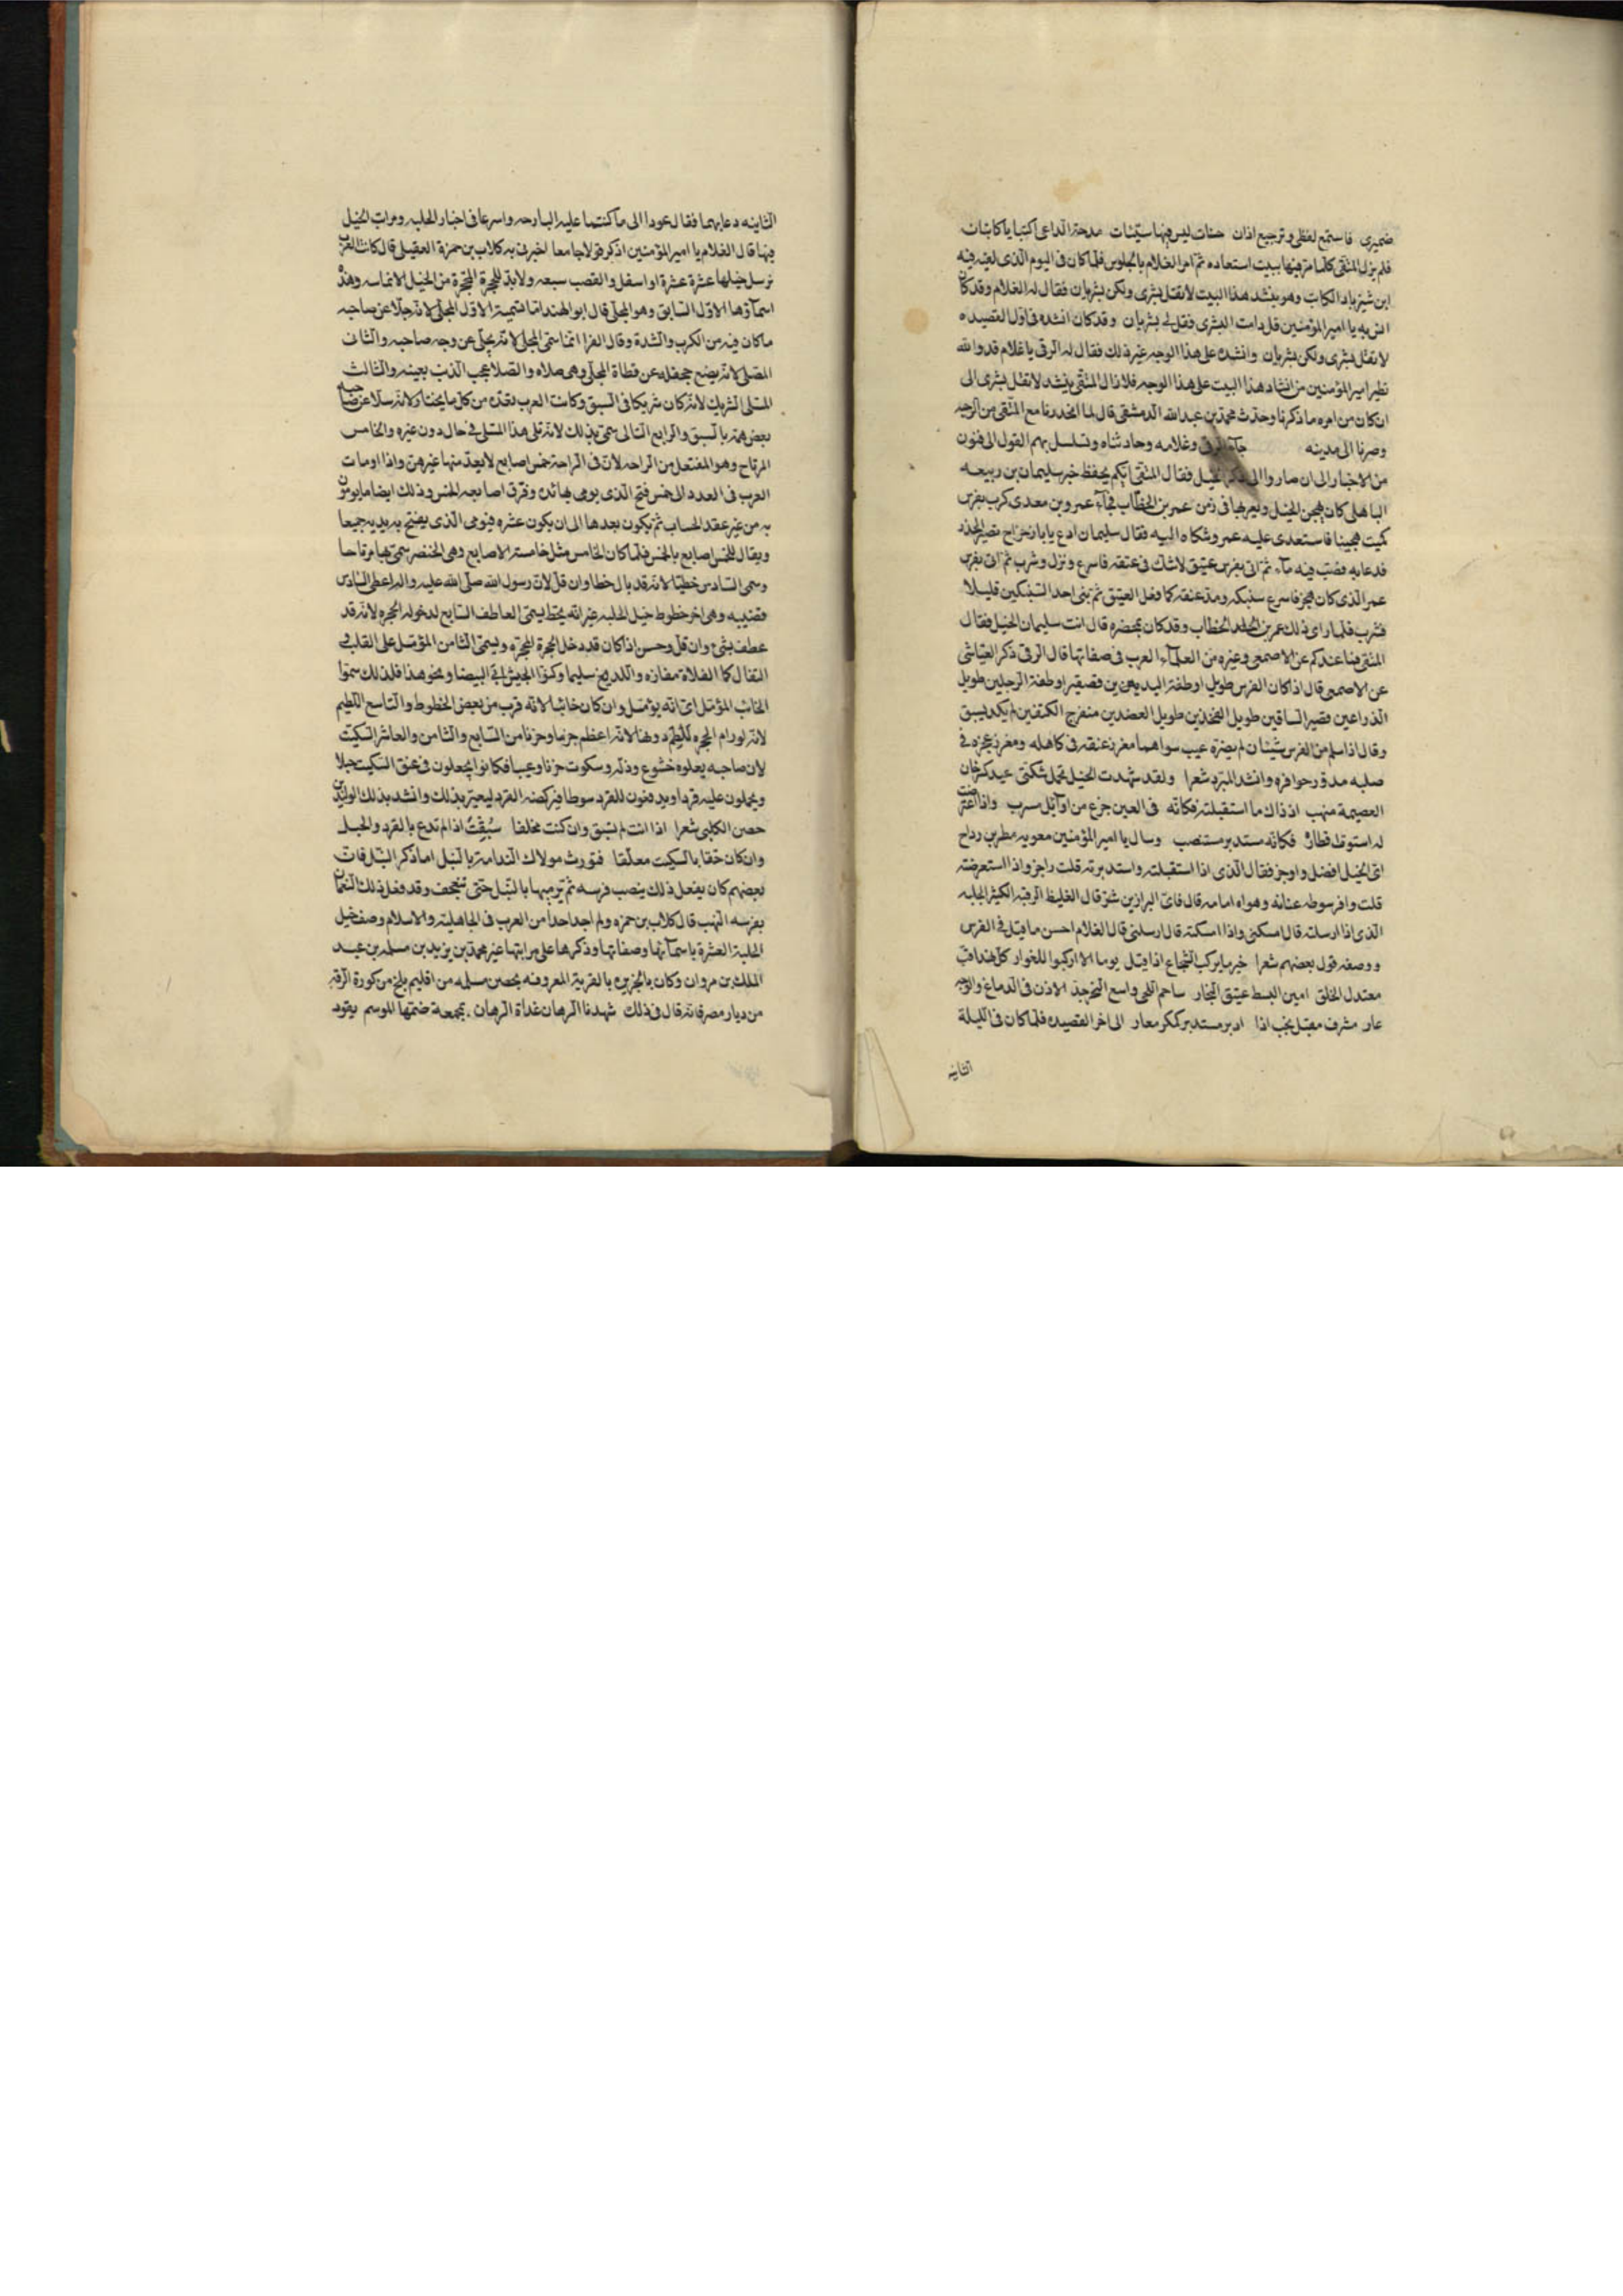 ضميرى فاستمع لفظى وترجيع اذان حسنات ليس فيها سيئات مدحة الداعى اكتبا يا كاتبات
فلم يزل المتقى كلما مر فيها ببيت استعاده ثم امر الغلام بالجلوس فلما كان فى اليوم الذى لقيه فيه
ابن شيرياد الكاتب وهو ينشد هذا البيت لا تقل بشرى ولكن بشريان فقال له الغلام وقد كان
انس به يا امير المؤمنين قل دامت البشرى فقل لى بشريان وقد كان انشده فى اول القصيده
لا تقل بشرى ولكن بشريان وانشده على هذا الوجه غير ذلك فقال له الرقى يا غلام قد والله
تطير امير المؤمنين من انشاد هذا البيت على هذا الوجه فلا زال المتقى ينشد لا تقل بشرى الى
ان كان من امره ما ذكرنا وحدث محمد بن عبد الله الدمشقى قال لما انحدرنا مع المتقى من الرحبه
وصرنا الى مدينه جآء الرقى وغلامه وحادثناه وتسلسل بهم القول الى فنون
من الاخبار الى ان صاروا الى ذكر الخيل فقال المتقى ايكم يحفظ خبر سليمان بن ربيعه
الباهلى كان يهجن الخيل ويعربها فى زمن عمر بن الخطاب فجآءه عمرو بن معدى كرب بفرس
كميت هجينا فاستعدى عليه عمر وشكاه اليه فقال سليمان ادع بابا رحراح قصير الجدر
فدعا به فصب فيه مآء ثم اتى بفرس عتيق لا شك فى عتقه فاسرع ونزل وشرب ثم اتى بفرس
عمر الذى كان هجن فاسرع سنبكه ومد عنقه كما فعل العتيق ثم ثنى احد السنبكين قليلا
فشرب فلما راى ذلك عمر بن الخطاب وقد كان بمحضره قال انت سليمان الخيل فقال
المتقى فما عندكم عن الاصمعى وغيره من العلمآء العرب فى صفاتها قال الرقى ذكر العياشى
عن الاصمعى قال اذا كان الفرس طويل اوطفة اليديين قصير اوطفة الرجلين طويل
الذراعين قصير الساقين طويل الفخذين طويل العضدين منفرج الكتفين لم يكد يسبق
وقال اذا سلم من الفرس شيئان لم يضره عيب سواهما مغرز عنقه فى كاهله ومغرز عجزه فى
صلبه مدوّر حوافره وانشد المبرد شعرا ولقد شهدت الخيل تحمل شكتى عيد كسرحان
العصيمة منهب اذ ذاك ما استقبلته فكانه فى العين جزع من اوائل سرب واذا اعترضت
له استوت قطاره فكانه مستدبر مستصب وسال يا امير المؤمنين معويه مطر بن رداح
اتى الخيل افضل واوجز فقال الذى اذا استقبلته واستدبرته قلت زاجز واذا استعرضته
قلت وافر سوطه عنانه وهواه امامه قال فاى البراذين شر قال الغليظ الرقبه الكثير الجلبه
الذى اذا ارسلته قال امسكنى واذا امسكته قال ارسلنى قال الغلام احسن ما قيل فى الفرس
ووصفه قول بعضهم شعرا خير ما يركب الشجاع اذا قيل يوما الا اركبوا للغوار كل هنداقب
معتدل الخلق امين البسط عتيق النجار ساحم اللحى واسع النحر جد الاذن فى الدماغ والوجه
عار مشرف مقبل يخب اذا ادبر مستدبر كمكر معار الى اخر القصيده فلما كان فى الليلة
الثانيه
الثانيه دعا بهما فقال عودا الى ما كنتما عليه البارحه واسرعا فى اخبار الحلبه ومراتب الخيل
فيها قال الغلام يا امير المؤمنين اذكر قولا جامعا اخبرنى به كلاب بن حمزة العقيلى قال كانت العرب
ترسل خيلها عشرة عشرة او اسفل والقصب سبعه ولا يدخل الحجرة المحجرة من الخيل الا ثمانيه وهذه
اسمآؤها الاول السابق وهو المجلى قال ابو الهندام انما سميت الاول المجلى لانه جلا عن صاحبه
ما كان فيه من الكرب والشدة وقال الفرا انما سمى المجلى لانه يجلى عن وجه صاحبه والثانى
المصلى لانه يضع جحفله عن قطاة المجلى وهى صلاه والصلا عجب الذنب بعينه والثالث
المسلى الشريك لانه كان شريكا فى السبق وكانت العرب تعده من كل ما يختار لانه سلا عن صاحبه
بعض همه بالسبق والرابع التالى سمى بذلك لانه تلى هذا المسلى فى حال دون غيره والخامس
المرتاح وهو المفتعل من الراحه لان فى الراحة خمس اصابع لا يعد منها غيرهن واذا اومات
العرب فى العدد الى خمس فتح الذى يومى بها يده وفرق اصابعه الخمس وذلك ايضا ما يومون
به من غير عقد الحساب ثم يكون بعدها الى ان يكون عشره فيومى الذى يفتح يديه جميعا
ويقال للخمس اصابع بالخمس فلما كان الخامس مثل خامسة الاصابع وهى الخنصر سمى بها مرتاحا
وسمى السادس خطيا لانه قد نال حظا وان قل لان رسول الله صلى الله عليه واله اعطى السادس
قضيبه وهى اخر خطوط خيل الحلبه غير انه يحظ يسمى العاطف السابع لدخوله الحجره لانه قد
عطف بشئ وان قل وحسن اذا كان قد دخل الحجرة المحجره ويسمى الثامن المؤمل على القلب فى
التفال كما الفلاة مفازه واللديغ سليما وكنوا الحبشى ابى البيضا ونحو هذا فلذلك سموا
الخائب المؤمل اى انه يؤمل وان كان خائبا لانه قرب من بعض الخطوط والتاسع اللطيم
لانه لو رام الحجره للطم دونها لانه اعظم جرما وحزنا من السابع والثامن والعاشر السكيت
لان صاحبه يعلوه خشوع وذله وسكوت حزنا وعيبا فكانوا يجعلون فى عنق السكيت حبلا
ويحملون عليه قردا ويدفعون للقرد سوطا فيركضه القرد ليعير بذلك وانشد بذلك الوليد بن
حصن الكلبى شعرا اذا انت لم تسبق وان كنت مخلفا سبقت اذا لم تدع بالقرد والحبل
وان كان حقا بالسكيت معلقا فتورث مولاك الندامة بالنبل اما ذكر النبل فان
بعضهم كان يفعل ذلك ينصب فرسه ثم يرميها بالنبل حتى تنجحف وقد فعل ذلك النعمان
بفرسه النهب قال كلاب بن حمزه ولم اجد احدا من العرب فى الجاهلية والاسلام وصف خيل
الحلبة العشرة باسمآئها وصفاتها وذكرها على مراتبها غير محمد بن يزيد بن مسلمه بن عبد
الملك بن مروان وكان بالجزيره بالقرية المعروفه بحصن مسلمه من اقليم بلخ من كورة الرقه
من ديار مضر فانه قال فى ذلك شهدنا الرهان غداة الرهان بمجمعة ضمتها الموسم يقود